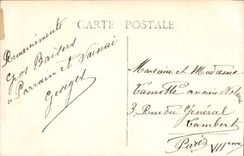 CARTE POSTALE
Remerciements
Gros Baisers
à Parrain et
Georget
Monsieur et Madame
3 Rue du Général
Lambert
Paris VIIème